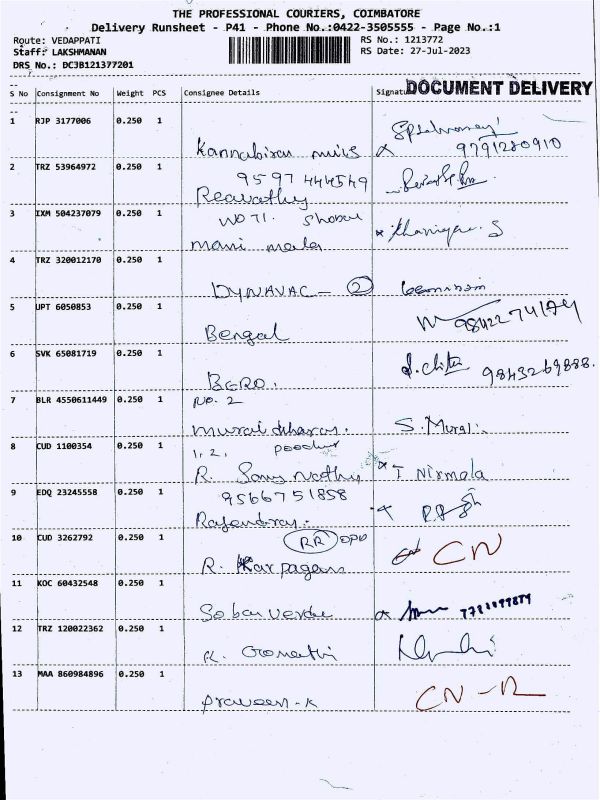 THE PROFESSIONAL COURIERS, COIMBATORE
Delivery Runsheet - P41 - Phone No.:0422-3505555 - Page No.:1
Route: VEDAPPATI RS No.: 1213772
Staff: LAKSHMANAN RS Date: 27-Jul-2023
DRS No.: DC3B121377201
DOCUMENT DELIVERY
S No Consignment No Weight PCS Consignee Details Signatu
1 RJP 3177006 0.250 1
Kannabiran mills 9791280910
2 TRZ 53964972 0.250 1
9597444549
Reavathy
3 IXM 504237079 0.250 1
mani mala
4 TRZ 320012170 0.250 1
DYNAVAC - 2
5 UPT 6050853 0.250 1
Bengal 9842274174
6 SVK 65081719 0.250 1
BERO. 9843269888.
7 BLR 4550611449 0.250 1
NO. 2
muralidharan. S. Murali
8 CUD 1100354 0.250 1
1, 2, poochur
R. T Nirmala
9 EDQ 23245558 0.250 1
9566751858
Rajendran.
10 CUD 3262792 0.250 1
RR
R. Karpagam CN
11 KOC 60432548 0.250 1
12 TRZ 120022362 0.250 1
R. Gomathi
13 MAA 860984896 0.250 1
Praveen-K CN-R